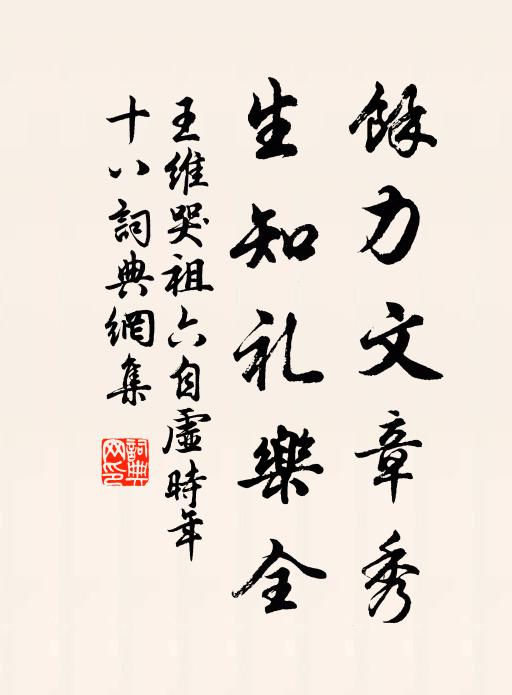 餘力文章秀
生知礼樂全
王維哭祖六自虛時年
十八詞典網集
詞典网印